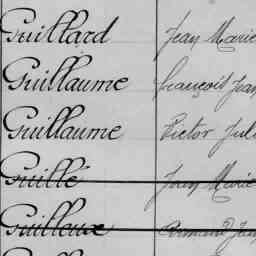 Guillard Jean Marie
Guillaume François Jean
Guillaume Victor Jule
Guillé Jean Marie
Guilleux Armand Jean